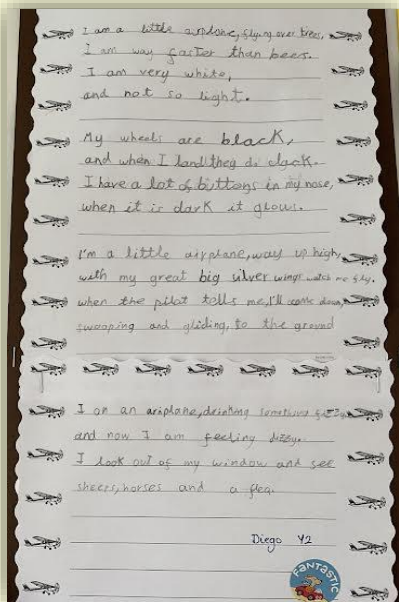 I am a little airplane, flying over trees,
I am way faster than bees.
I am very white,
and not so light.
My wheels are black,
and when I land they do clack.
I have a lot of buttons in my nose,
when it is dark it glows.
I'm a little airplane, way up high,
with my great big silver wings watch me fly.
when the pilot tells me, I'll come down,
swooping and gliding, to the ground
I on an ariplane, drinking something fizzy
and now I am feeling dizzy.
I look out of my window and see
sheers, horses and a flea.
Diego Y2
FANTASTIC